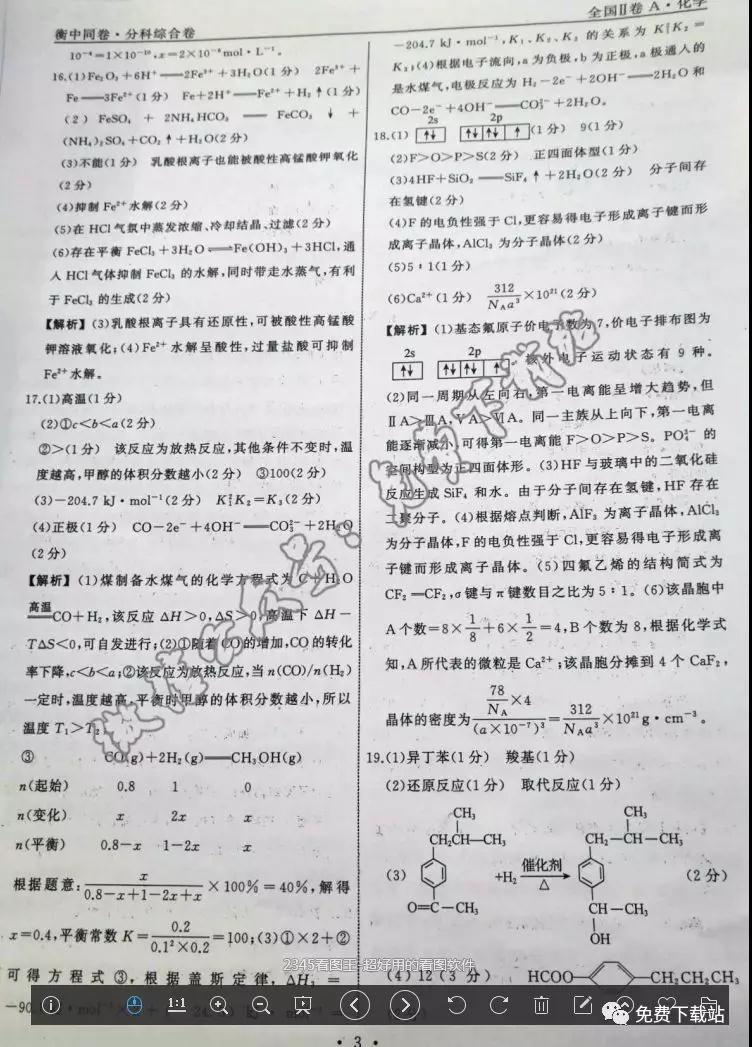 衡中同卷·分科综合卷
全国Ⅱ卷 A·化学
10⁻⁴=1×10⁻¹⁰,x=2×10⁻⁶mol·L⁻¹。
16.(1)Fe₂O₃+6H⁺══2Fe³⁺+3H₂O(1分) 2Fe³⁺+
Fe══3Fe²⁺(1分) Fe+2H⁺══Fe²⁺+H₂↑(1分)
(2) FeSO₄ + 2NH₄HCO₃ ══ FeCO₃ ↓ +
(NH₄)₂SO₄+CO₂↑+H₂O(2分)
(3)不能(1分) 乳酸根离子也能被酸性高锰酸钾氧化
(2分)
(4)抑制 Fe²⁺水解(2分)
(5)在 HCl 气氛中蒸发浓缩、冷却结晶、过滤(2分)
(6)存在平衡 FeCl₃+3H₂O⇌Fe(OH)₃+3HCl,通
入 HCl 气体抑制 FeCl₃ 的水解,同时带走水蒸气,有利
于 FeCl₃ 的生成(2分)
【解析】(3)乳酸根离子具有还原性,可被酸性高锰酸
钾溶液氧化;(4)Fe²⁺水解呈酸性,过量盐酸可抑制
Fe²⁺水解。
17.(1)高温(1分)
(2)①c<b<a(2分)
②>(1分) 该反应为放热反应,其他条件不变时,温
度越高,甲醇的体积分数越小(2分) ③100(2分)
(3)−204.7 kJ·mol⁻¹(2分) K₁²K₂=K₃(2分)
(4)正极(1分) CO−2e⁻+4OH⁻══CO₃²⁻+2H₂O
(2分)
【解析】(1)煤制备水煤气的化学方程式为 C+H₂O
高温══CO+H₂,该反应 ΔH>0,ΔS>0,高温下 ΔH−
TΔS<0,可自发进行;(2)①随着 CO的增加,CO 的转化
率下降,c<b<a;②该反应为放热反应,当 n(CO)/n(H₂)
一定时,温度越高,平衡时甲醇的体积分数越小,所以
温度 T₁>T₂
③ CO(g)+2H₂(g)══CH₃OH(g)
n(起始) 0.8 1 0
n(变化) x 2x x
n(平衡) 0.8−x 1−2x x
根据题意:x/(0.8−x+1−2x+x)×100%=40%,解得
x=0.4,平衡常数 K=0.2/(0.1²×0.2)=100;(3)①×2+②
可得方程式③,根据盖斯定律,ΔH₃ =
−204.7 kJ·mol⁻¹,K₁、K₂、K₃ 的关系为 K₁²K₂=
K₃;(4)根据电子流向,a 为负极,b 为正极,a 极通入的
是水煤气,电极反应为 H₂−2e⁻+2OH⁻══2H₂O 和
CO−2e⁻+4OH⁻══CO₃²⁻+2H₂O。
2s 2p
18.(1) ↑↓ ↑↓ ↑↓ ↑ (1分) 9(1分)
(2)F>O>P>S(2分) 正四面体型(1分)
(3)4HF+SiO₂══SiF₄↑+2H₂O(2分) 分子间存
在氢键(2分)
(4)F 的电负性强于 Cl,更容易得电子形成离子键而形
成离子晶体,AlCl₃ 为分子晶体(2分)
(5)5∶1(1分)
(6)Ca²⁺(1分) 312/(N_A a³)×10²¹(2分)
【解析】(1)基态氟原子价电子数为7,价电子排布图为
2s 2p
↑↓ ↑↓ ↑↓ ↑ 核外电子运动状态有 9 种。
(2)同一周期从左向右,第一电离能呈增大趋势,但
ⅡA>ⅢA,ⅤA>ⅥA。同一主族从上向下,第一电离
能逐渐减小,可得第一电离能 F>O>P>S。PO₄³⁻ 的
空间构型为正四面体形。(3)HF 与玻璃中的二氧化硅
反应生成 SiF₄ 和水。由于分子间存在氢键,HF 存在
二聚分子。(4)根据熔点判断,AlF₃ 为离子晶体,AlCl₃
为分子晶体,F 的电负性强于 Cl,更容易得电子形成离
子键而形成离子晶体。(5)四氟乙烯的结构简式为
CF₂═CF₂,σ键与π键数目之比为 5∶1。(6)该晶胞中
A 个数=8×1/8+6×1/2=4,B 个数为 8,根据化学式
知,A 所代表的微粒是 Ca²⁺;该晶胞分摊到 4 个 CaF₂,
晶体的密度为(78/N_A×4)/(a×10⁻⁷)³=312/(N_A a³)×10²¹g·cm⁻³。
19.(1)异丁苯(1分) 羧基(1分)
(2)还原反应(1分) 取代反应(1分)
CH₃ CH₃
CH₂CH—CH₃ CH₂—CH—CH₃
(3) +H₂ 催化剂 △ (2分)
O=C—CH₃ CH—CH₃
OH
2345看图王-超好用的看图软件
(4)12(3分) HCOO— —CH₂CH₂CH₃
1:1
免费下载站
·3·